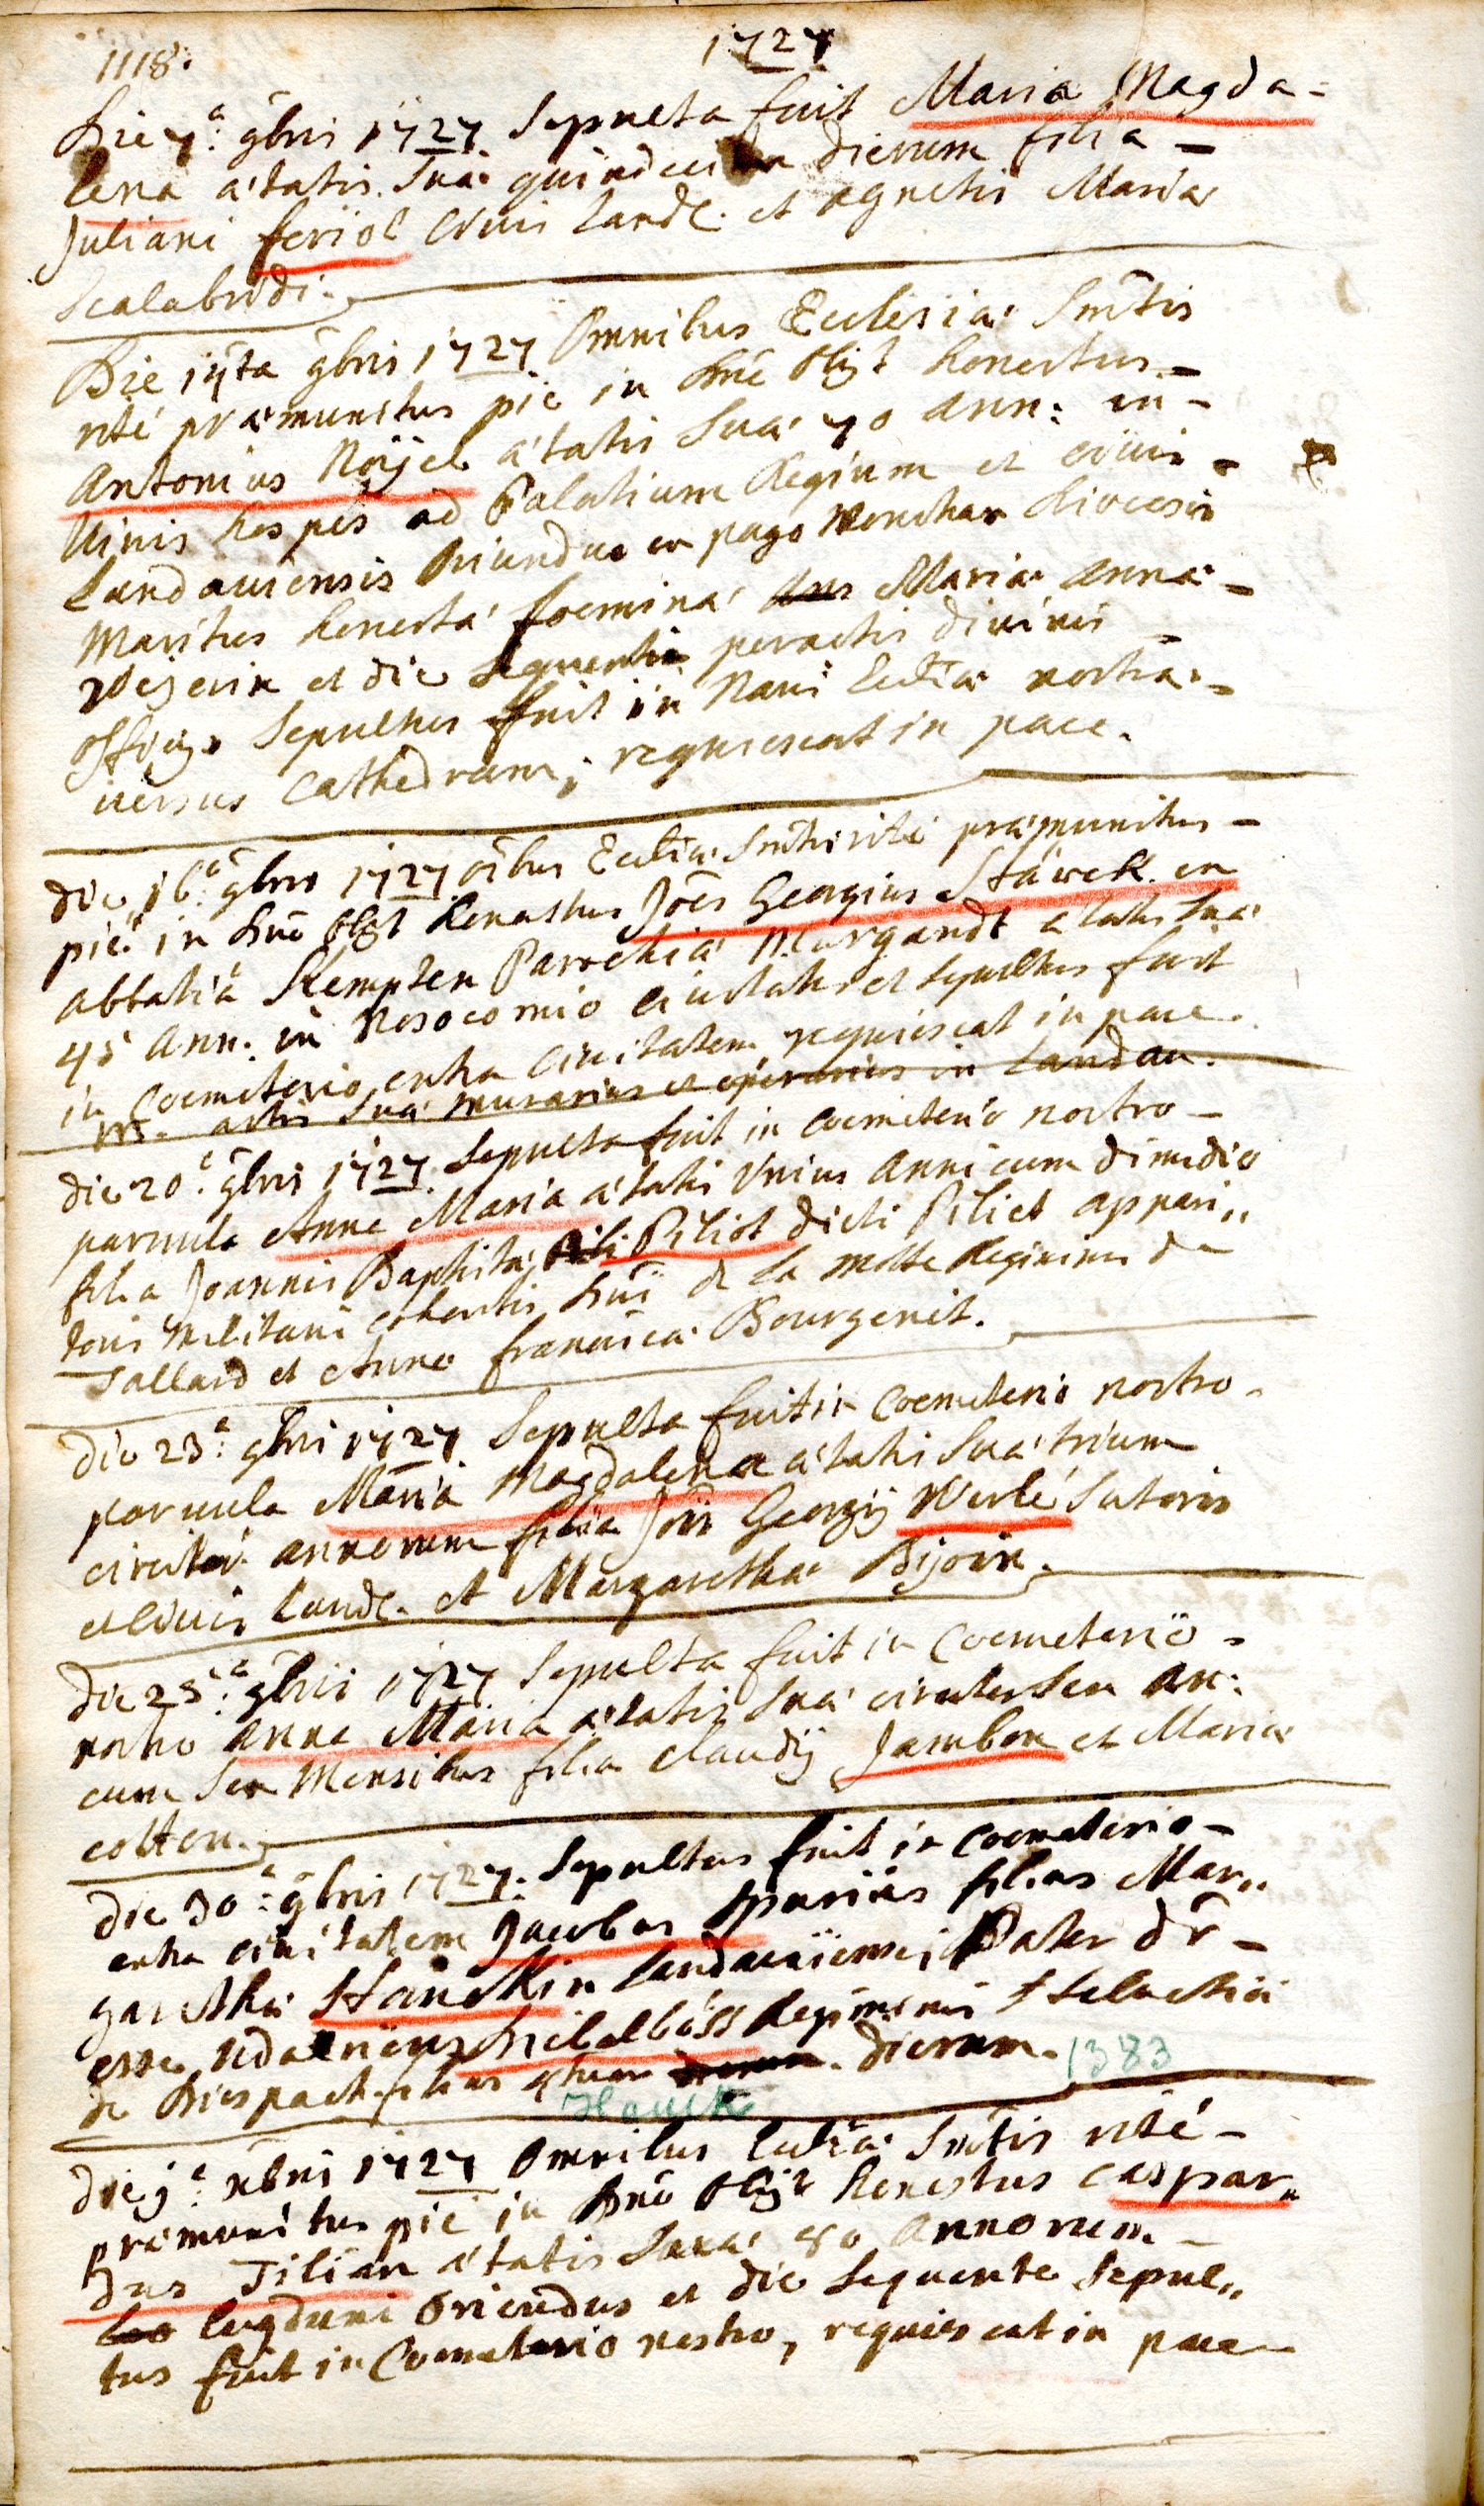 1118.
1727
Die 7a: 9bris 1727 Sepulta fuit Maria Magda-
lena ætatis suæ quindecim dierum filia -
Juliani feriol civis Land. et agnetis Mariæ
Scalabrodi.
Die 14ta 9bris 1727 Omnibus Ecclesiæ Smtis
rité præmunitus pié in Dnõ Obijt honestus -
Antonius Noijel ætatis suæ 70 ann: in -
Uinis hospes ad Palatium Regium et civis -
Landauiensis Oriundus ex pago Diocesis
Maritus honestæ foeminæ Mariæ annæ -
Weÿerin et die sequenti peractis divinis -
officijs Sepultus fuit in Naui Eccliæ nostræ -
uersus Cathedram; requiescat in pace.
die 16a: 9bris 1727 oibus Eccliæ Smtis rité præmunitus -
pié in Dnõ Obijt honestus Joẽs Georgius Stärck ex
abbatiâ Kempten Parochiâ Murgandt ætatis suæ
45 ann: in Nosocomio ciuitatis et sepultus fuit
in Coemeterio extra Ciuitatem requiescat in pace.
artis suæ murarius et operarius in Landau.
die 20a: 9bris 1727 Sepulta fuit in Coemeterio nostro -
paruula Anna Maria ætatis Unius Anni cum dimidio
filia Joannis Baptistæ Piliot dicti Piliet appari,,
toris Militaris cohortis Dnï de la Motte Regiminis de
Tallard et Annæ franciscæ Bourgenit.
die 23a: 9bris 1727 Sepulta fuit in Coemeterio nostro -
paruula Maria Magdalena ætatis suæ trium
circiter annorum filia Jõis Georgÿ Werlé Sutoris
et civis Land. et Margarethæ Bijoin.
die 25a: 9bris 1727 Sepulta fuit in Coemeterio -
nostro Anna Maria ætatis suæ circiter sex an:
cum sex Mensibus filia Claudÿ Jambon et Mariæ
cotton.
die 30a: 9bris 1727. Sepultus fuit in Coemeterio -
extra ciuitatem Jacobus spurius filius Mar,,
garethæ Hauckin Landauiensis Pater dr -
esse Udalricus Regiminis Heluetici
de Diespach filius 4tuor dierum. 1383
Hauck
die ja: xbris 1727 Omnibus Eccliæ Smtis rité -
præmunitus pié in Dnõ Obijt honestus Caspar,,
dus Tilian ætatis suæ 80 Annorum. -
lugduni Oriundus et die sequente Sepul,,
tus fuit in Coemeterio nostro, requiescat in pace